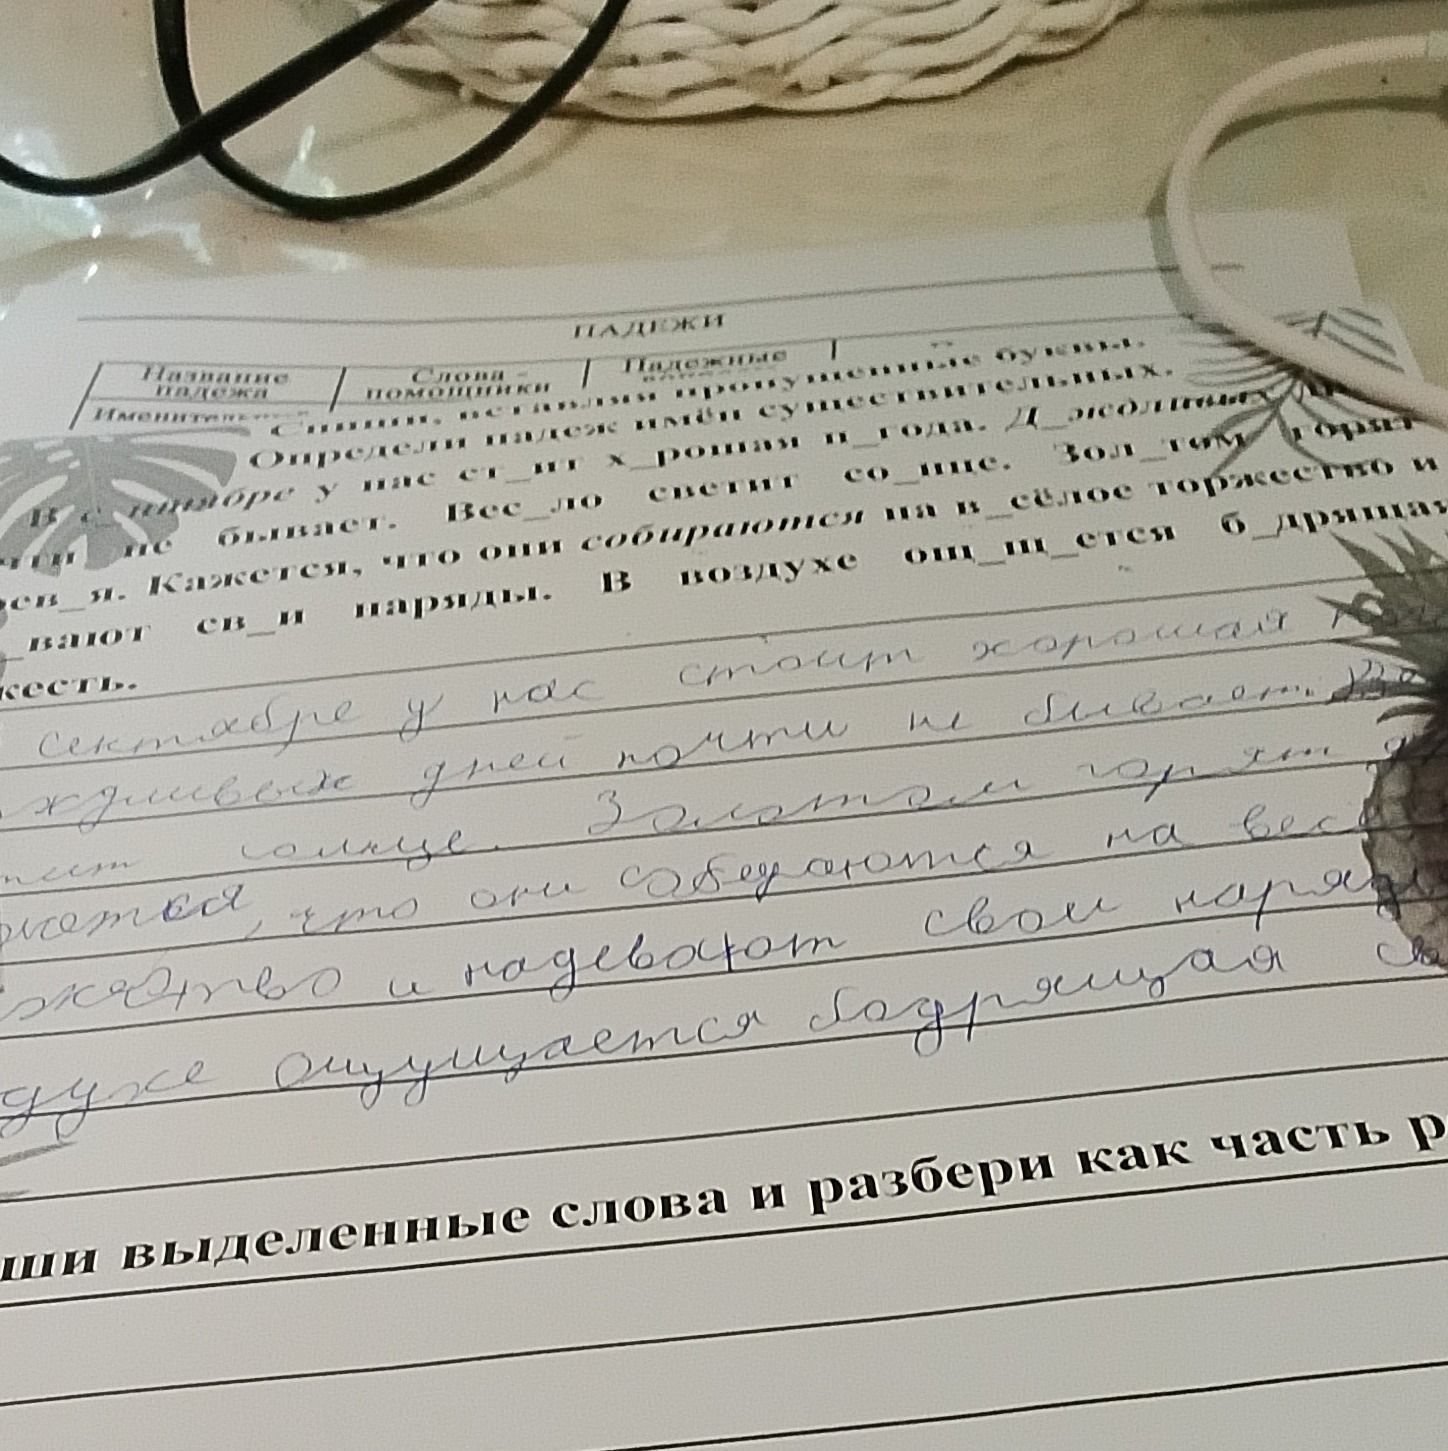 ПАДЕЖИ
Название падежа Слова - помощники Падежные
Именительный
Спиши, вставляя пропущенные буквы.
Определи падеж имён существительных.
В с_нтябре у нас ст_ит х_рошая п_года. Д_ждливых
не бывает. Вес_ло светит со_нце. Зол_том горят
рев_я. Кажется, что они собираются на в_сёлое торжество и
_вают св_и наряды. В воздухе ощ_щ_ется б_дрящая
жесть.
сентябре у нас стоит хорошая
ждливых дней почти не бывает.
тит солнце. Золотом горят
жется, что они собераются на вес
жество и надевают свои наряды
духе ощущается бодрящая св
ши выделенные слова и разбери как часть р